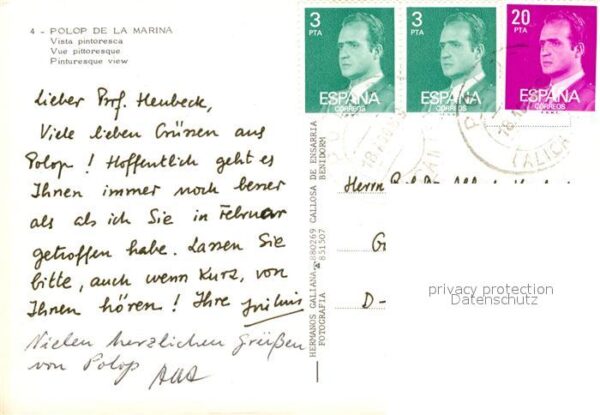 4 - POLOP DE LA MARINA
Vista pintoresca
Vue pittoresque
Pinturesque view
Lieber Prof. Heubeck,
Viele lieben Grüssen aus
Polop! Hoffentlich geht es
Ihnen immer noch besser
als als ich Sie in Februar
getroffen habe. Lassen Sie
bitte, auch wenn kurz, von
Ihnen hören! Ihre
Vielen herzlichen Grüßen
von Polop
HERMANOS GALIANA 880269 CALLOSA DE ENSARRIA
FOTOGRAFIA 851507 BENIDORM
3 PTA ESPAÑA CORREOS
3 PTA ESPAÑA CORREOS
20 PTA ESPAÑA CORREOS
Herrn Prof. Dr.
G
D -
privacy protection
Datenschutz